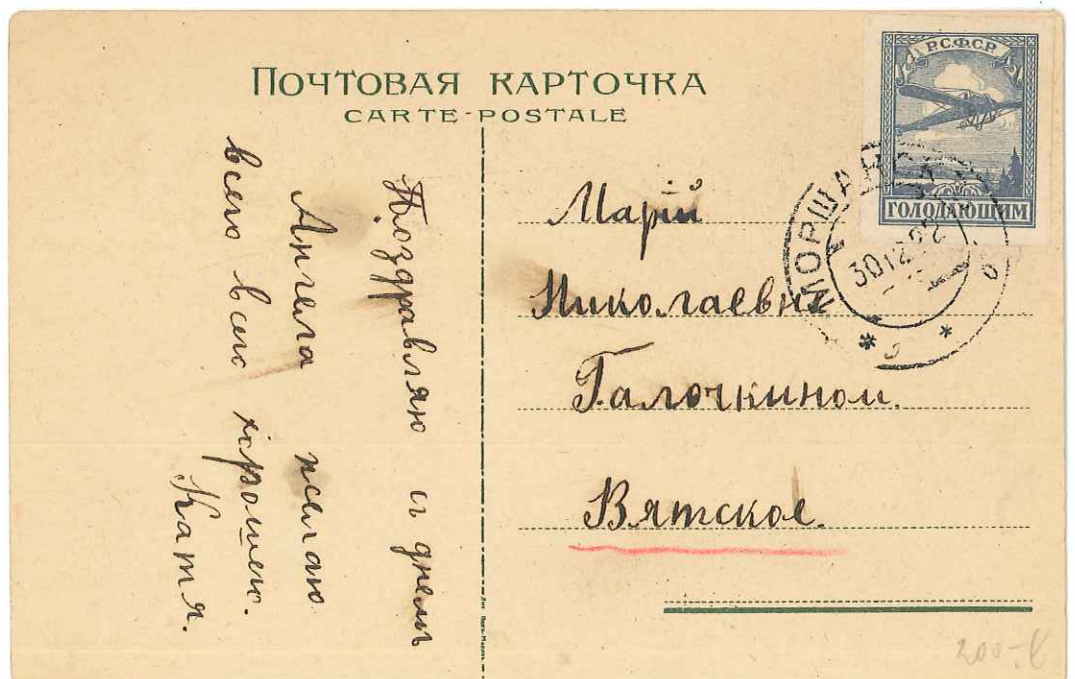 ПОЧТОВАЯ КАРТОЧКА
CARTE-POSTALE
Поздравляю съ днемъ
Ангела желаю
всего всего хорошего.
Катя.
Марiй
Николаевне
Галочкиной.
Вятское.
Р.С.Ф.С.Р.
ГОЛОДАЮЩИМ
МОРША
30 12 22
200.-